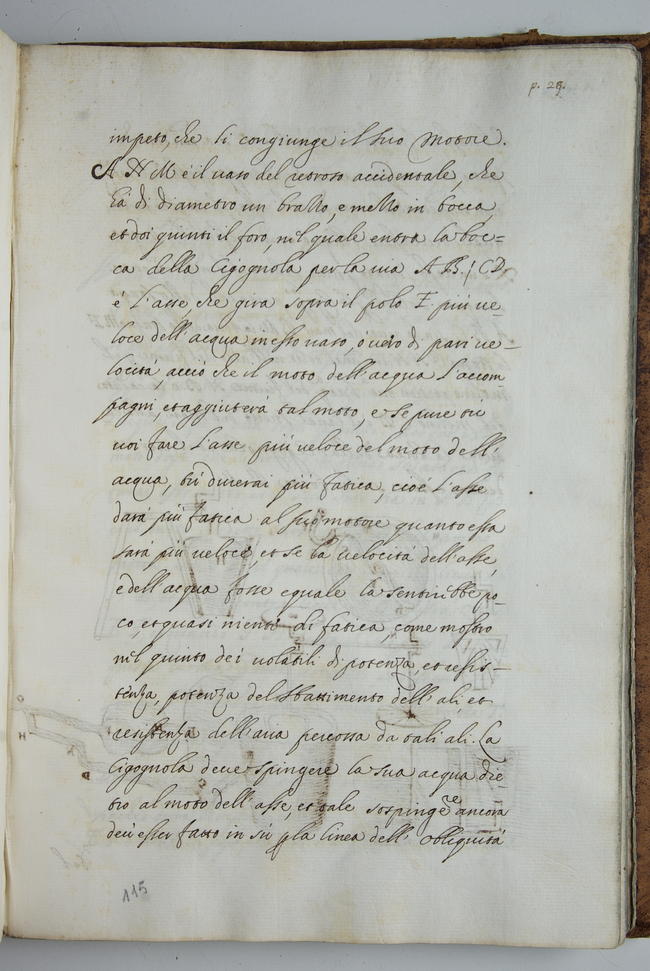 p. 29.
impeto, che li congiunge il suo Motore.
A N M é il uaso del retroso accidentale, che
há di diametro un brasso, e messo in bocca
et doi giunti il foro, nil quale entra la boc=
ca della Cigognola per la uia A B. CD,
é L'asse, che gira sopra il polo F più ue=
loce dell'acqua in esso uaso, ó uero di pari ue=
locitá, acció che il moto dell'acqua L'accom
pagni, et aggiuterá tal moto, e se pure tu
uoi fare L'asse piú ueloce del moto dell'
acqua, tu durerai piú fatica, cioé L'asse
dará piú fatica al suo motore quanto essa
sará piú ueloce, et se la uelocitá dell'asse,
e dell'acqua fosse equale la sentirebbe po-
co, et quasi niente di fatica, come mostro
nil quinto dei uolatili di potenza, et resis-
tenza, potenza del sbattimento dell'ali, et
resistenza dell'aria percossa da tali ali. La
Cigognola deue spingere la sua acqua drie
tro al moto dell'asse, et tale sospingere ancora
deu'esser fatto in sú p la linea dell'obliquitá
G
H
D
115